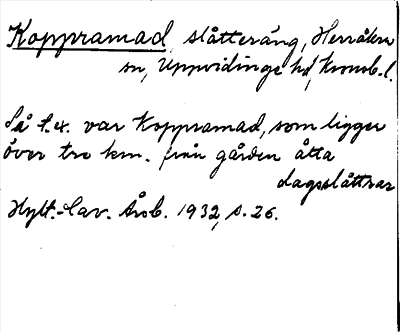 Koppramad, slåtteräng, Herråkra
sn, Uppvidinge hd, Kronob. l.
Så t.ex. var Koppramad, som ligger
över tre km. från gården åtta
dagsslåttrar
Hylt.-Cav. Årsb. 1932, s. 26.